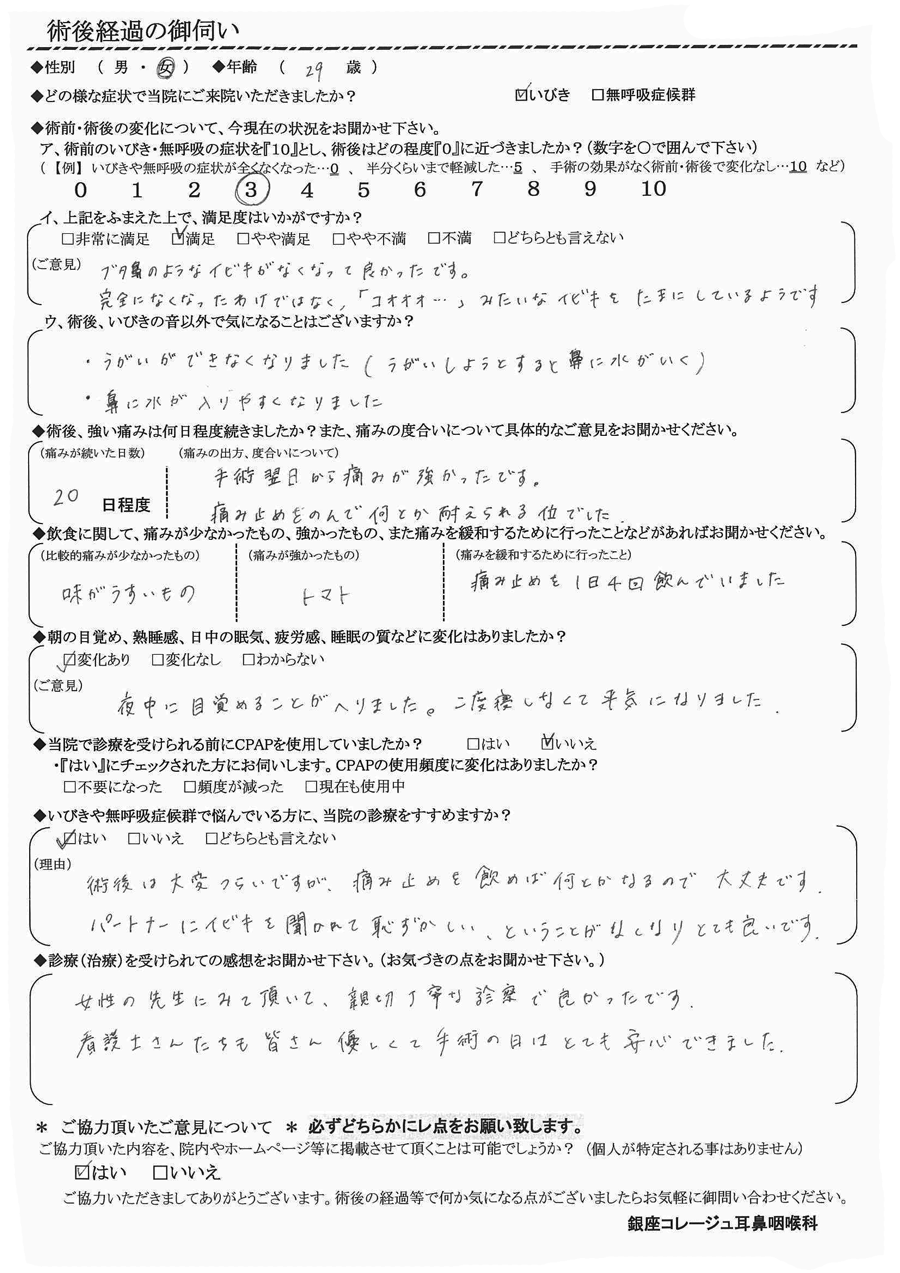 術後経過の御伺い
◆性別 ( 男 ・ 女 ) ◆年齢 ( 29 歳 )
◆どの様な症状で当院にご来院いただきましたか? ☑いびき □無呼吸症候群
◆術前・術後の変化について、今現在の状況をお聞かせ下さい。
ア、術前のいびき・無呼吸の症状を『10』とし、術後はどの程度『0』に近づきましたか?(数字を〇で囲んで下さい)
(【例】いびきや無呼吸の症状が全くなくなった…0 、 半分くらいまで軽減した…5 、 手術の効果がなく術前・術後で変化なし…10 など)
0 1 2 3 4 5 6 7 8 9 10
イ、上記をふまえた上で、満足度はいかがですか?
□非常に満足 ☑満足 □やや満足 □やや不満 □不満 □どちらとも言えない
(ご意見) ブタ鼻のようなイビキがなくなって良かったです。
完全になくなったわけではなく、「コオオオ…」みたいなイビキをたまにしているようです
ウ、術後、いびきの音以外で気になることはございますか?
・うがいができなくなりました(うがいしようとすると鼻に水がいく)
・鼻に水が入りやすくなりました
◆術後、強い痛みは何日程度続きましたか?また、痛みの度合いについて具体的なご意見をお聞かせください。
(痛みが続いた日数) (痛みの出方、度合いについて)
手術翌日から痛みが強かったです。
20 日程度 痛み止めをのんで何とか耐えられる位でした.
◆飲食に関して、痛みが少なかったもの、強かったもの、また痛みを緩和するために行ったことなどがあればお聞かせください。
(比較的痛みが少なかったもの) (痛みが強かったもの) (痛みを緩和するために行ったこと)
味がうすいもの トマト 痛み止めを1日4回飲んでいました
◆朝の目覚め、熟睡感、日中の眠気、疲労感、睡眠の質などに変化はありましたか?
☑変化あり □変化なし □わからない
(ご意見) 夜中に目覚めることがへりました。二度寝しなくて平気になりました.
◆当院で診療を受けられる前にCPAPを使用していましたか? □はい ☑いいえ
・『はい』にチェックされた方にお伺いします。CPAPの使用頻度に変化はありましたか?
□不要になった □頻度が減った □現在も使用中
◆いびきや無呼吸症候群で悩んでいる方に、当院の診療をすすめますか?
☑はい □いいえ □どちらとも言えない
(理由) 術後は大変つらいですが、痛み止めを飲めば何とかなるので大丈夫です.
パートナーにイビキを聞かれて恥ずかしい、ということがなくなりとても良いです.
◆診療(治療)を受けられての感想をお聞かせ下さい。(お気づきの点をお聞かせ下さい。)
女性の先生にみて頂いて、親切丁寧な診察で良かったです.
看護士さんたちも皆さん優しくて手術の日はとても安心できました.
＊ ご協力頂いたご意見について ＊ 必ずどちらかにレ点をお願い致します。
ご協力頂いた内容を、院内やホームページ等に掲載させて頂くことは可能でしょうか? (個人が特定される事はありません)
☑はい □いいえ
ご協力いただきましてありがとうございます。術後の経過等で何か気になる点がございましたらお気軽に御問い合わせください。
銀座コレージュ耳鼻咽喉科